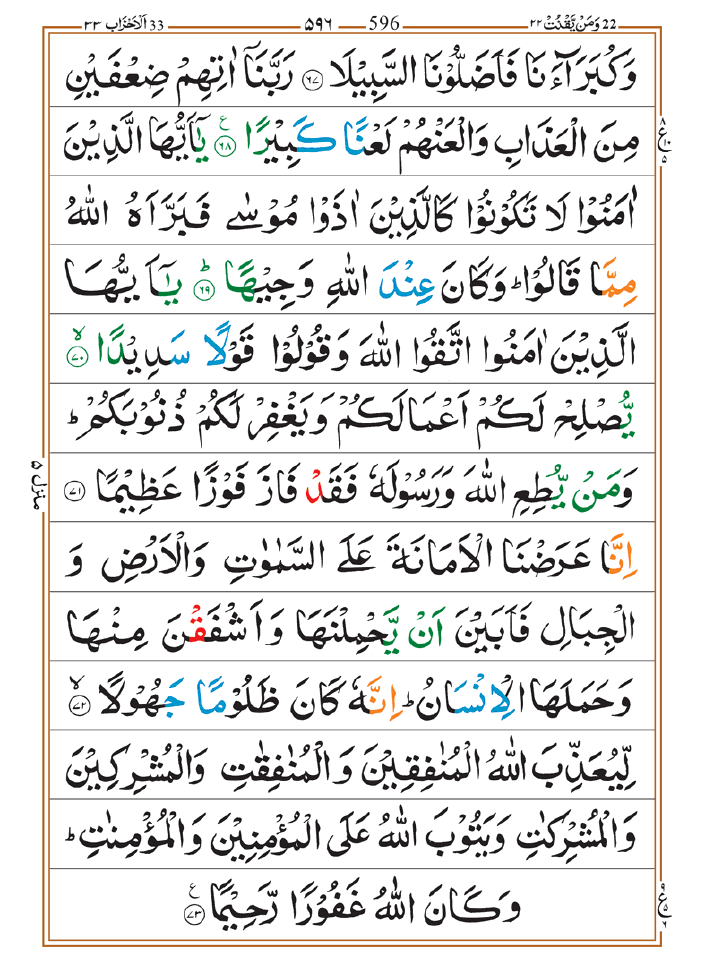 22 وَمَنْ يَّقْنُتْ ٢٢ — 596 — ٥٩٦ — 33 اَلْاَحْزَاب ٣٣
وَكُبَرَآءَنَا فَاَضَلُّوْنَا السَّبِيْلَا ﴿٦٧﴾ رَبَّنَاۤ اٰتِهِمْ ضِعْفَيْنِ
مِنَ الْعَذَابِ وَالْعَنْهُمْ لَعْنًا كَبِيْرًا ﴿٦٨﴾ ع يٰۤاَيُّهَا الَّذِيْنَ
اٰمَنُوْا لَا تَكُوْنُوْا كَالَّذِيْنَ اٰذَوْا مُوْسٰى فَبَرَّاَهُ اللّٰهُ
مِمَّا قَالُوْا ؕ وَكَانَ عِنْدَ اللّٰهِ وَجِيْهًا ﴿٦٩﴾ ؕ يٰۤاَيُّهَا
الَّذِيْنَ اٰمَنُوا اتَّقُوا اللّٰهَ وَقُوْلُوْا قَوْلًا سَدِيْدًا ﴿٧٠﴾ ۙ
يُّصْلِحْ لَكُمْ اَعْمَالَكُمْ وَيَغْفِرْ لَكُمْ ذُنُوْبَكُمْ ؕ
وَمَنْ يُّطِعِ اللّٰهَ وَرَسُوْلَهٗ فَقَدْ فَازَ فَوْزًا عَظِيْمًا ﴿٧١﴾
اِنَّا عَرَضْنَا الْاَمَانَةَ عَلَى السَّمٰوٰتِ وَالْاَرْضِ وَ
الْجِبَالِ فَاَبَيْنَ اَنْ يَّحْمِلْنَهَا وَاَشْفَقْنَ مِنْهَا
وَحَمَلَهَا الْاِنْسَانُ ؕ اِنَّهٗ كَانَ ظَلُوْمًا جَهُوْلًا ﴿٧٢﴾ ۙ
لِّيُعَذِّبَ اللّٰهُ الْمُنٰفِقِيْنَ وَالْمُنٰفِقٰتِ وَالْمُشْرِكِيْنَ
وَالْمُشْرِكٰتِ وَيَتُوْبَ اللّٰهُ عَلَى الْمُؤْمِنِيْنَ وَالْمُؤْمِنٰتِ ؕ
وَكَانَ اللّٰهُ غَفُوْرًا رَّحِيْمًا ﴿٧٣﴾ ع
منزل ٥